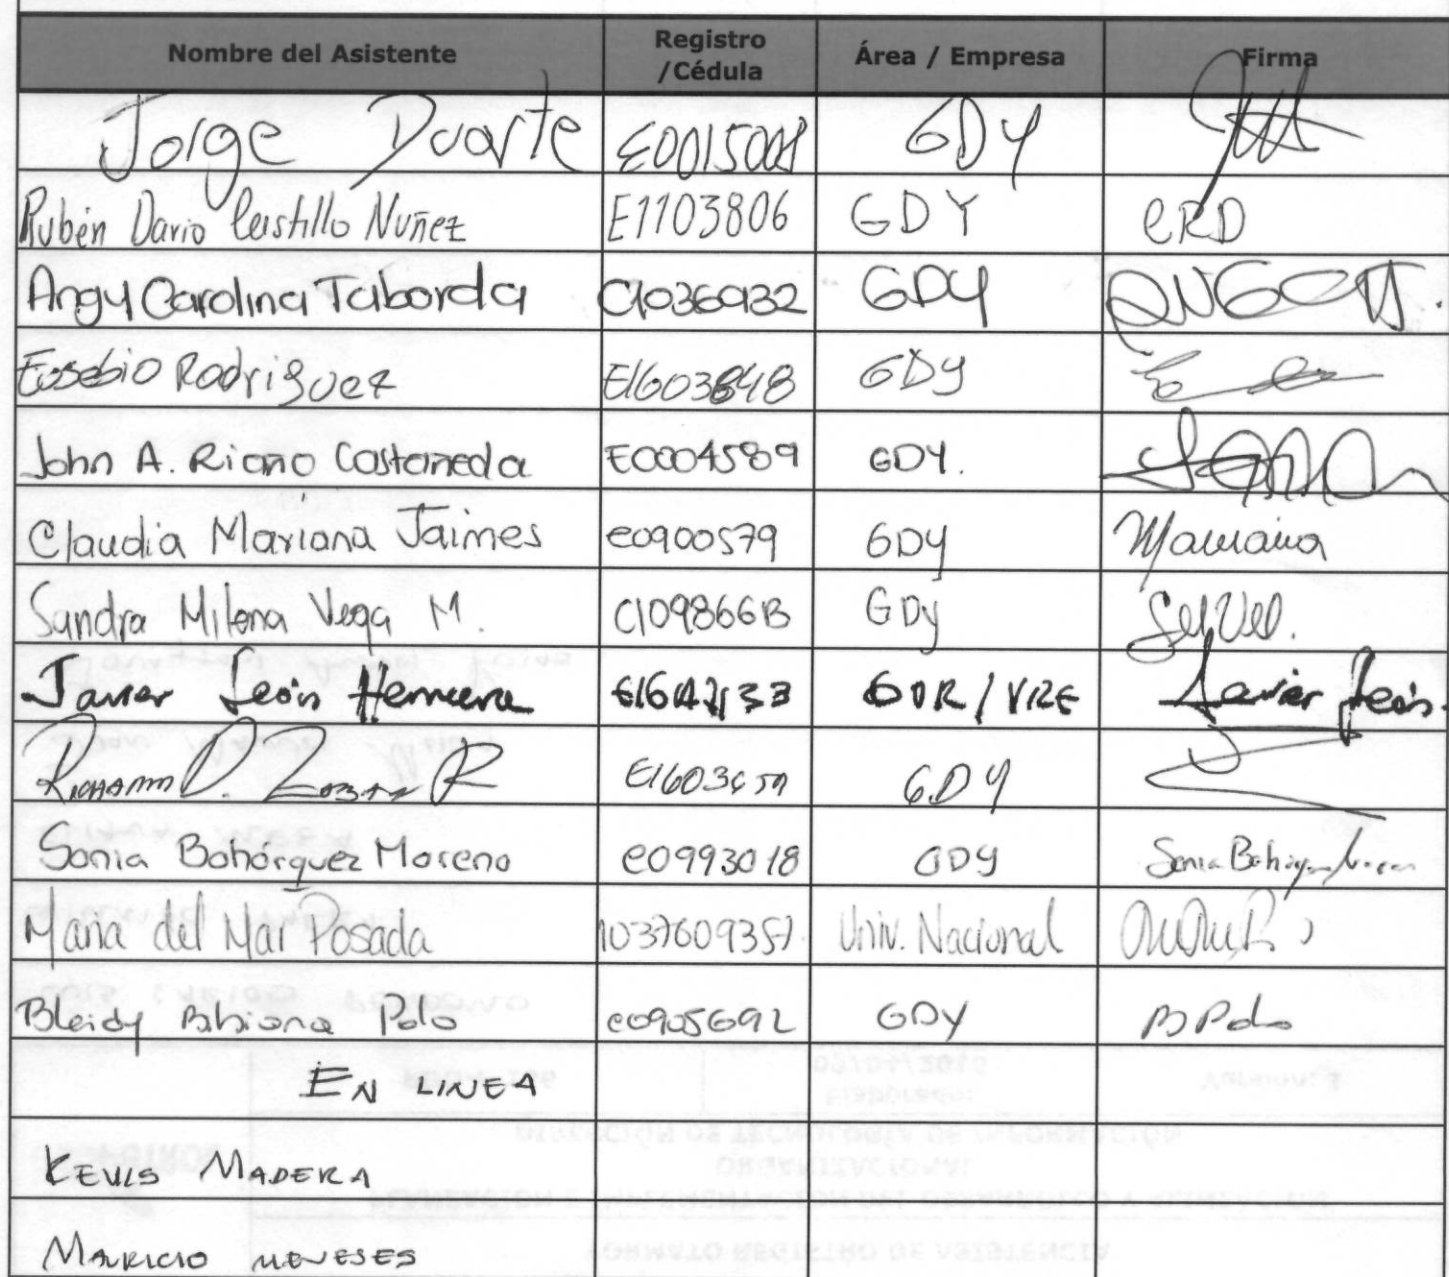 Nombre del Asistente Registro /Cédula Área / Empresa Firma
Jorge Duarte E0015008 GDY
Rubén Dario Castillo Nuñez E1103806 GDY CRD
Angy Carolina Taborda C1036932 GDY
Eusebio Rodriguez E1603848 GDY
John A. Riaño Castañeda E0004589 GDY.
Claudia Mariana Jaimes E0900579 GDY Mariana
Sandra Milena Vega M. C109866B GDY
Javier León Herrera GDR / VRE Javier León.
Richard D. GDY
Sonia Bohórquez Moreno E0993018 GDY Sonia Bohórquez Moreno
Maria del Mar Posada 1037609357. Univ. Nacional
Bleidy Bibiana Polo E0905692 GDY B Polo
EN LINEA
KEVIS MADERA
MAURICIO MENESES